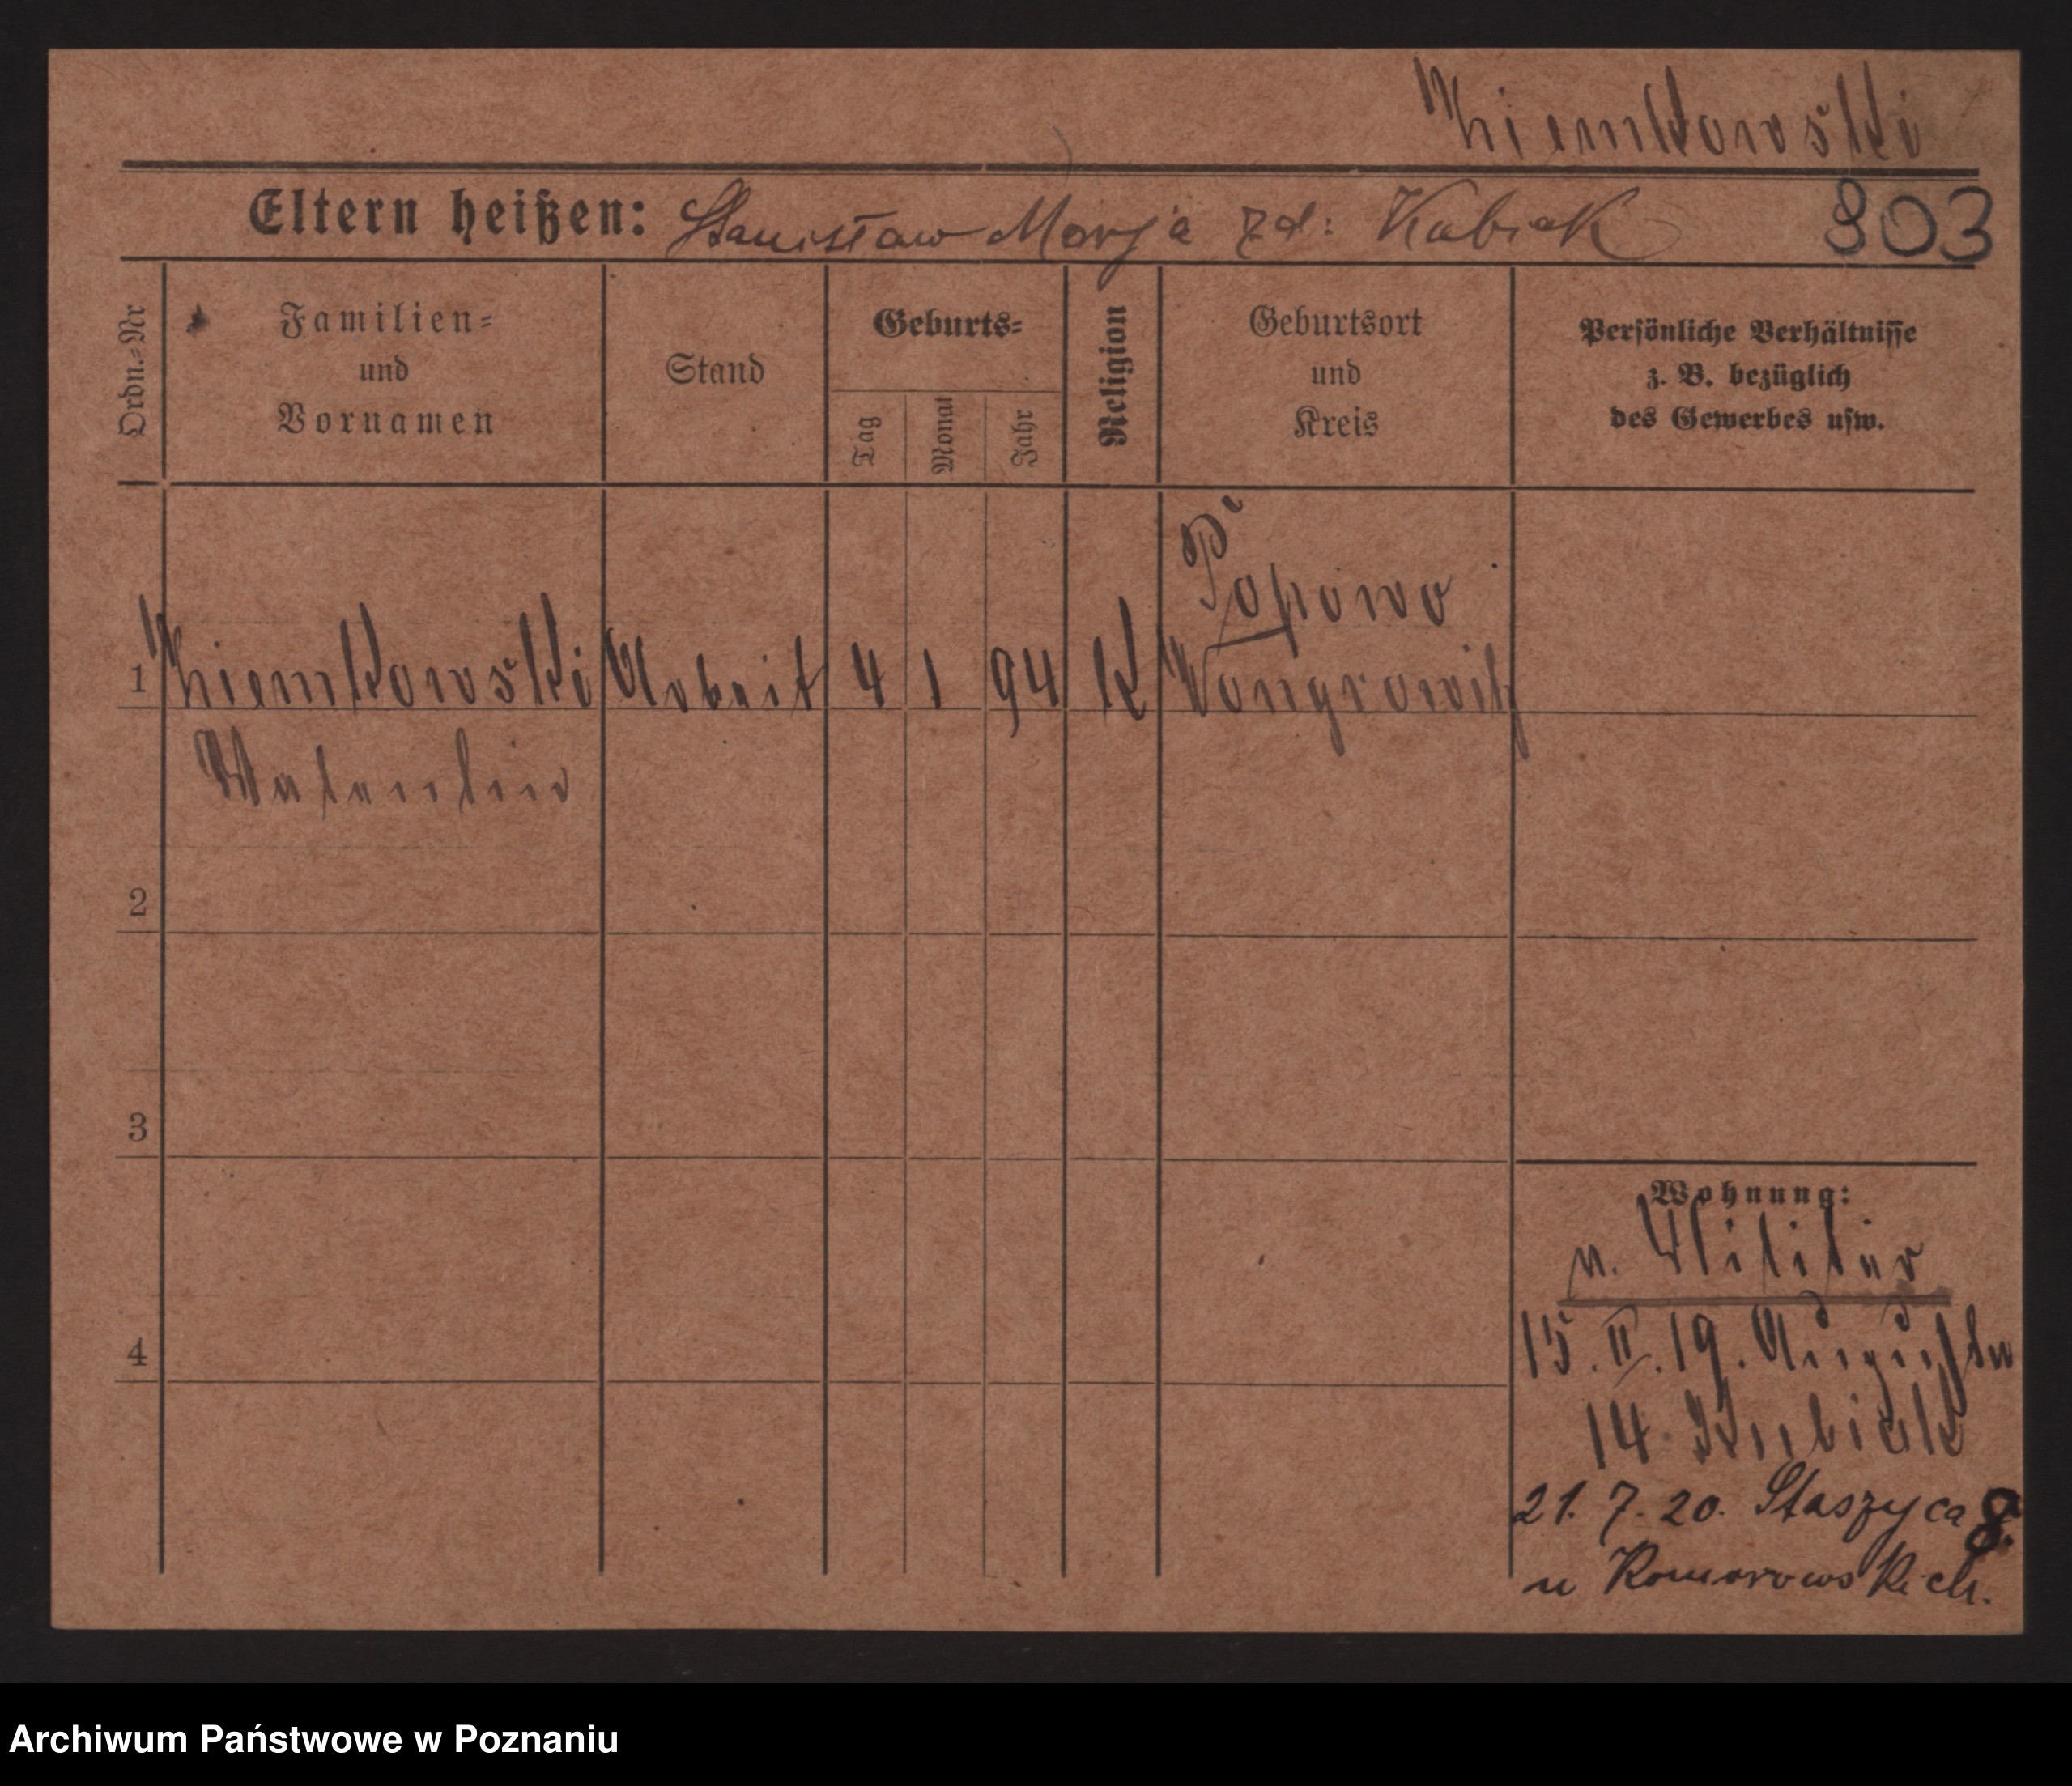 Eltern heißen: Stanisław Marja zd: Kubiak 803
Ordn.=Nr
Familien=
und
Vornamen
Stand
Geburts=
Tag
Monat
Jahr
Religion
Geburtsort
und
Kreis
Persönliche Verhältnisse
z. B. bezüglich
des Gewerbes usw.
Popowo
1 Arbeit 4 1 94 K Wongrowitz
Valentin
2
3
4
Wohnung:
v. Militär
15.II.19. Augusta
14 Kubiak
21. 7. 20. Staszyca 8.
u Komorowskich.
Archiwum Państwowe w Poznaniu